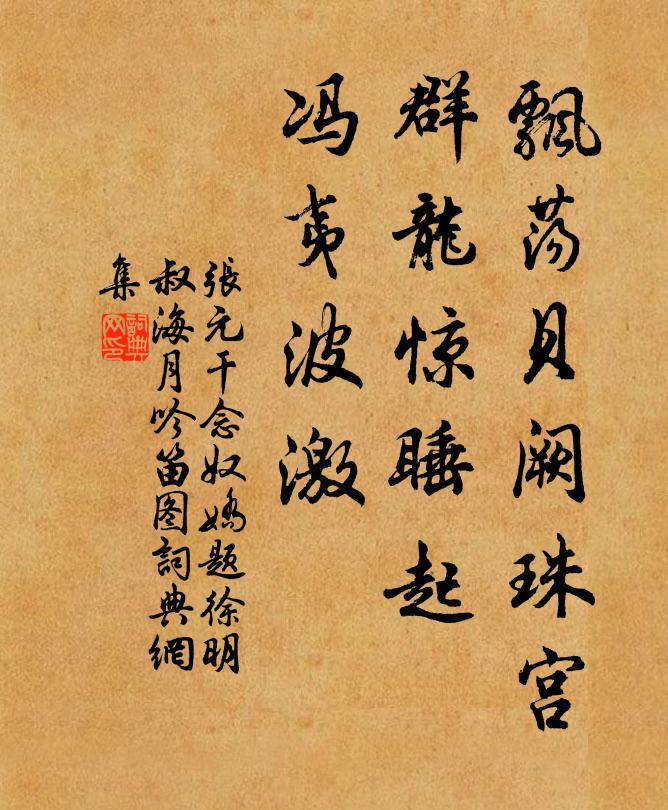 飘荡贝阙珠宫
群龍惊睡起
冯夷波激
張元干念奴嬌題徐明
叔海月吟笛图詞典網
集
詞典
网印